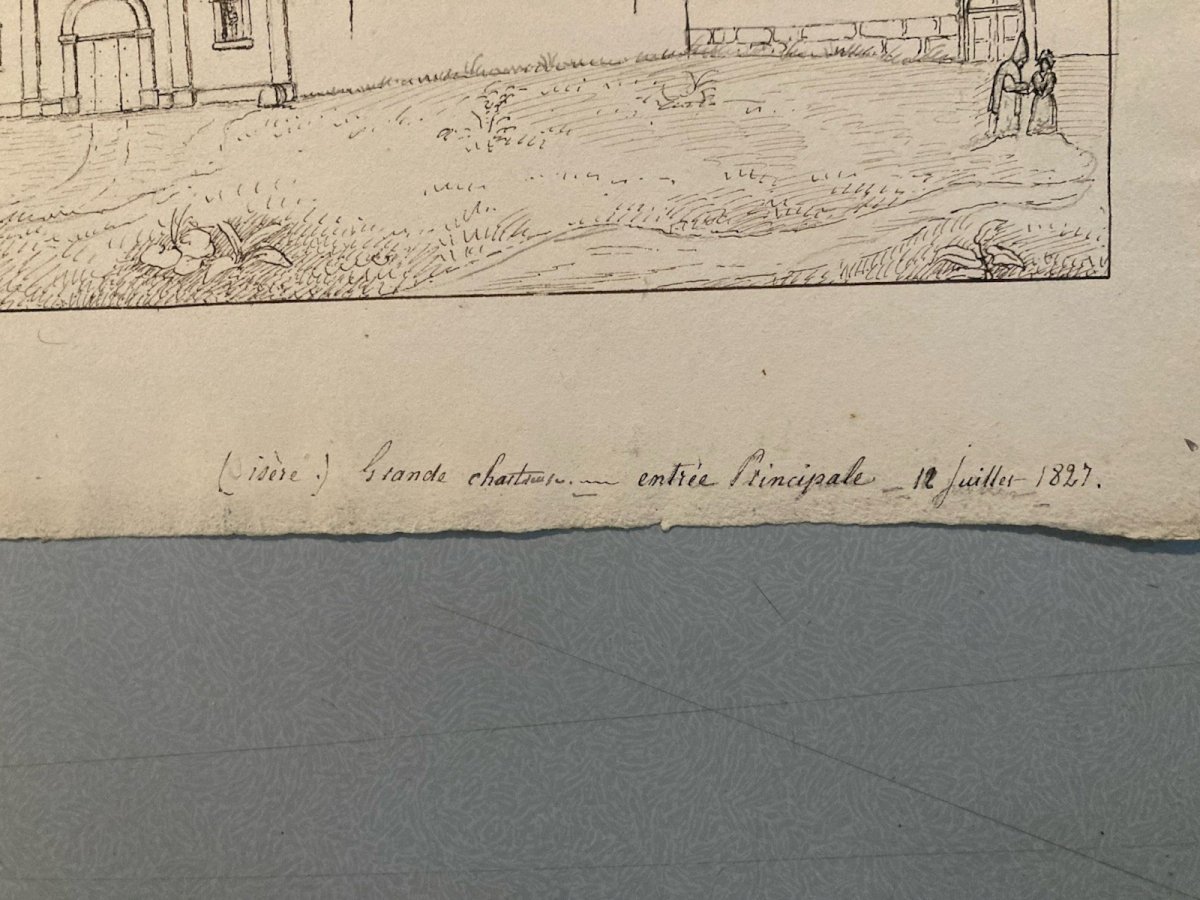 (isère.) Grande chartreuse. — entrée Principale — 12 Juillet 1827.